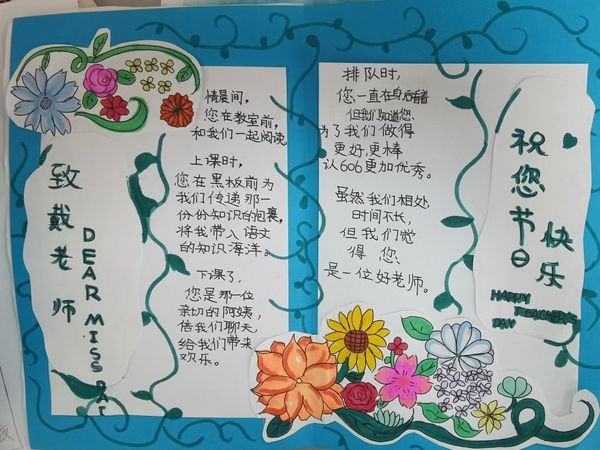 致戴老师
DEAR MISS DAI
情晨间,
您在教室前,
和我们一起阅读。
上课时,
您在黑板前为
我们传递那一
份份知识的包裹,
将我带入语文
的知识海洋。
下课了,
您是那一位
亲切的阿姨,
倍我们聊天,
给我们带来
欢乐。
排队时,
您一直在身后
但我们知道您
为了我们做得
更好,更棒
认606更加优秀。
虽然我们相处
时间不长,
但我们觉
得您
是一位好老师。
祝您节日
快乐
HAPPY TEACHER'S
DAY